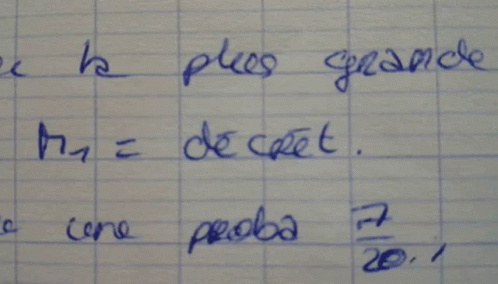 la plus grande
M₁ = décret.
une proba 7/20.,